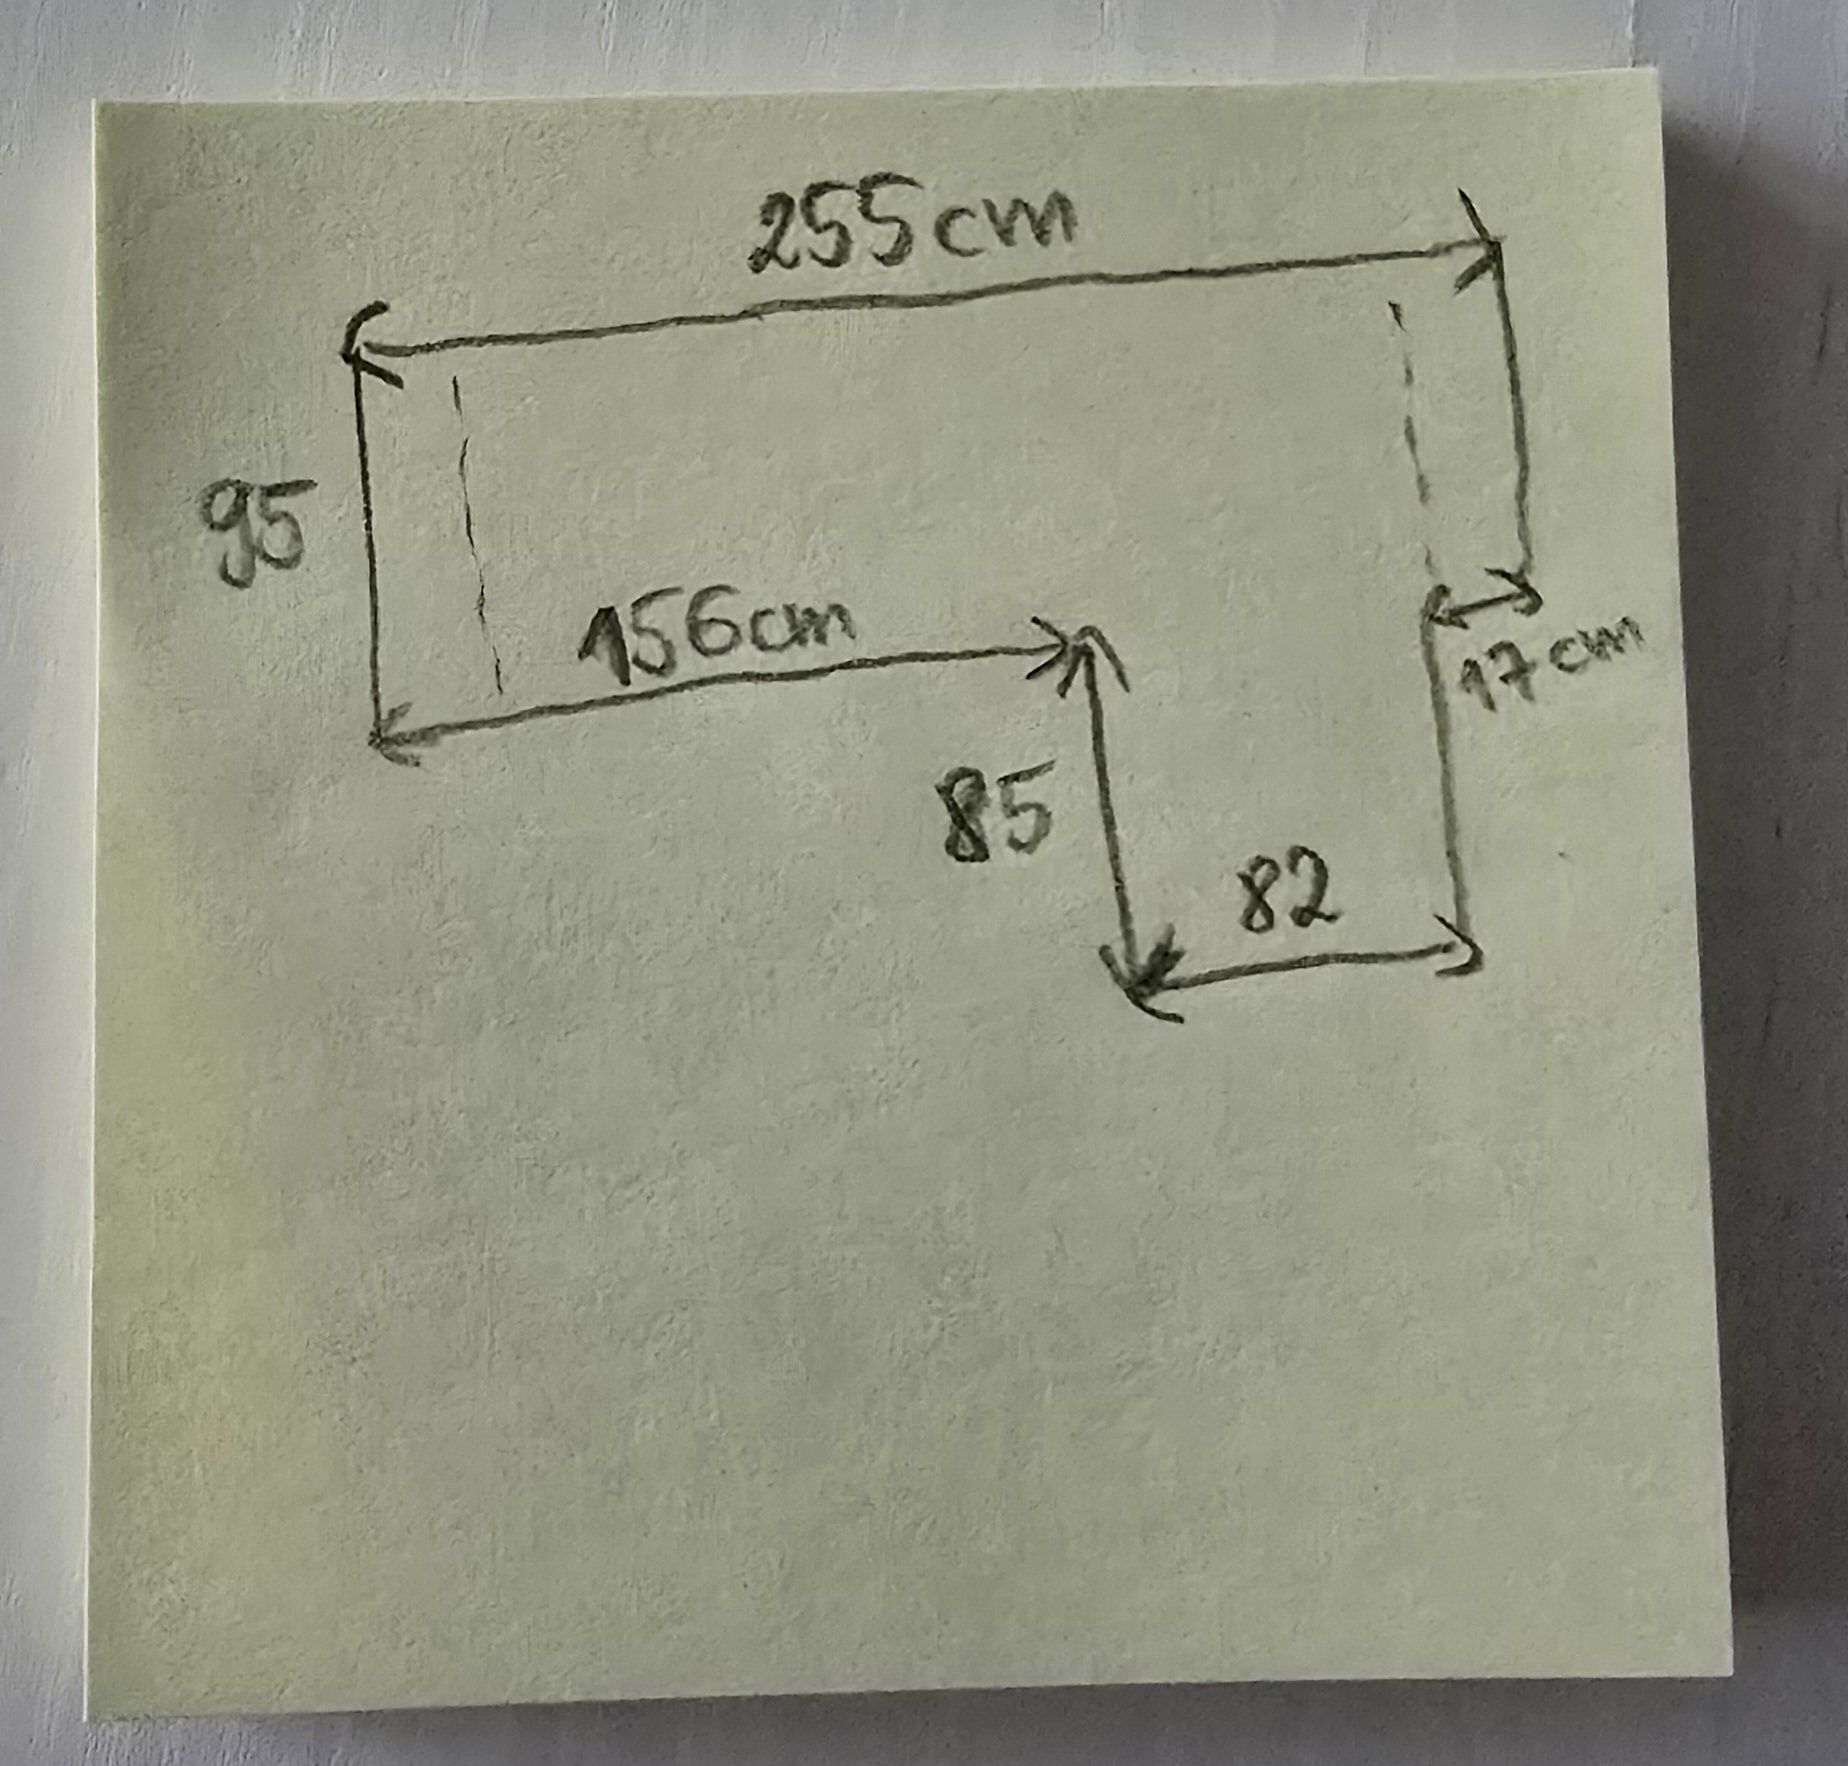 255cm
95
156cm
17cm
85
82